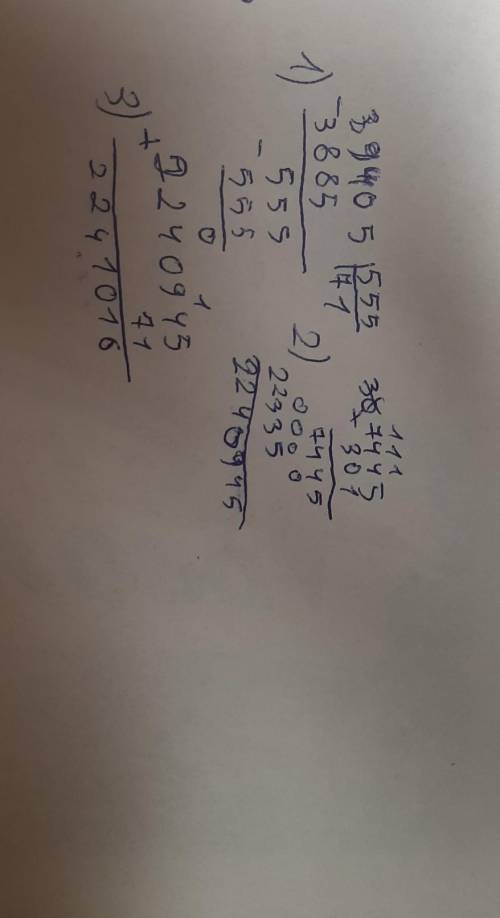 1) 39405 | 555
- 3885 | 71
- 555
555
0
2) 111
7445
301
7445
0000
22335
2240945
3) + 2240945
1
71
2241016